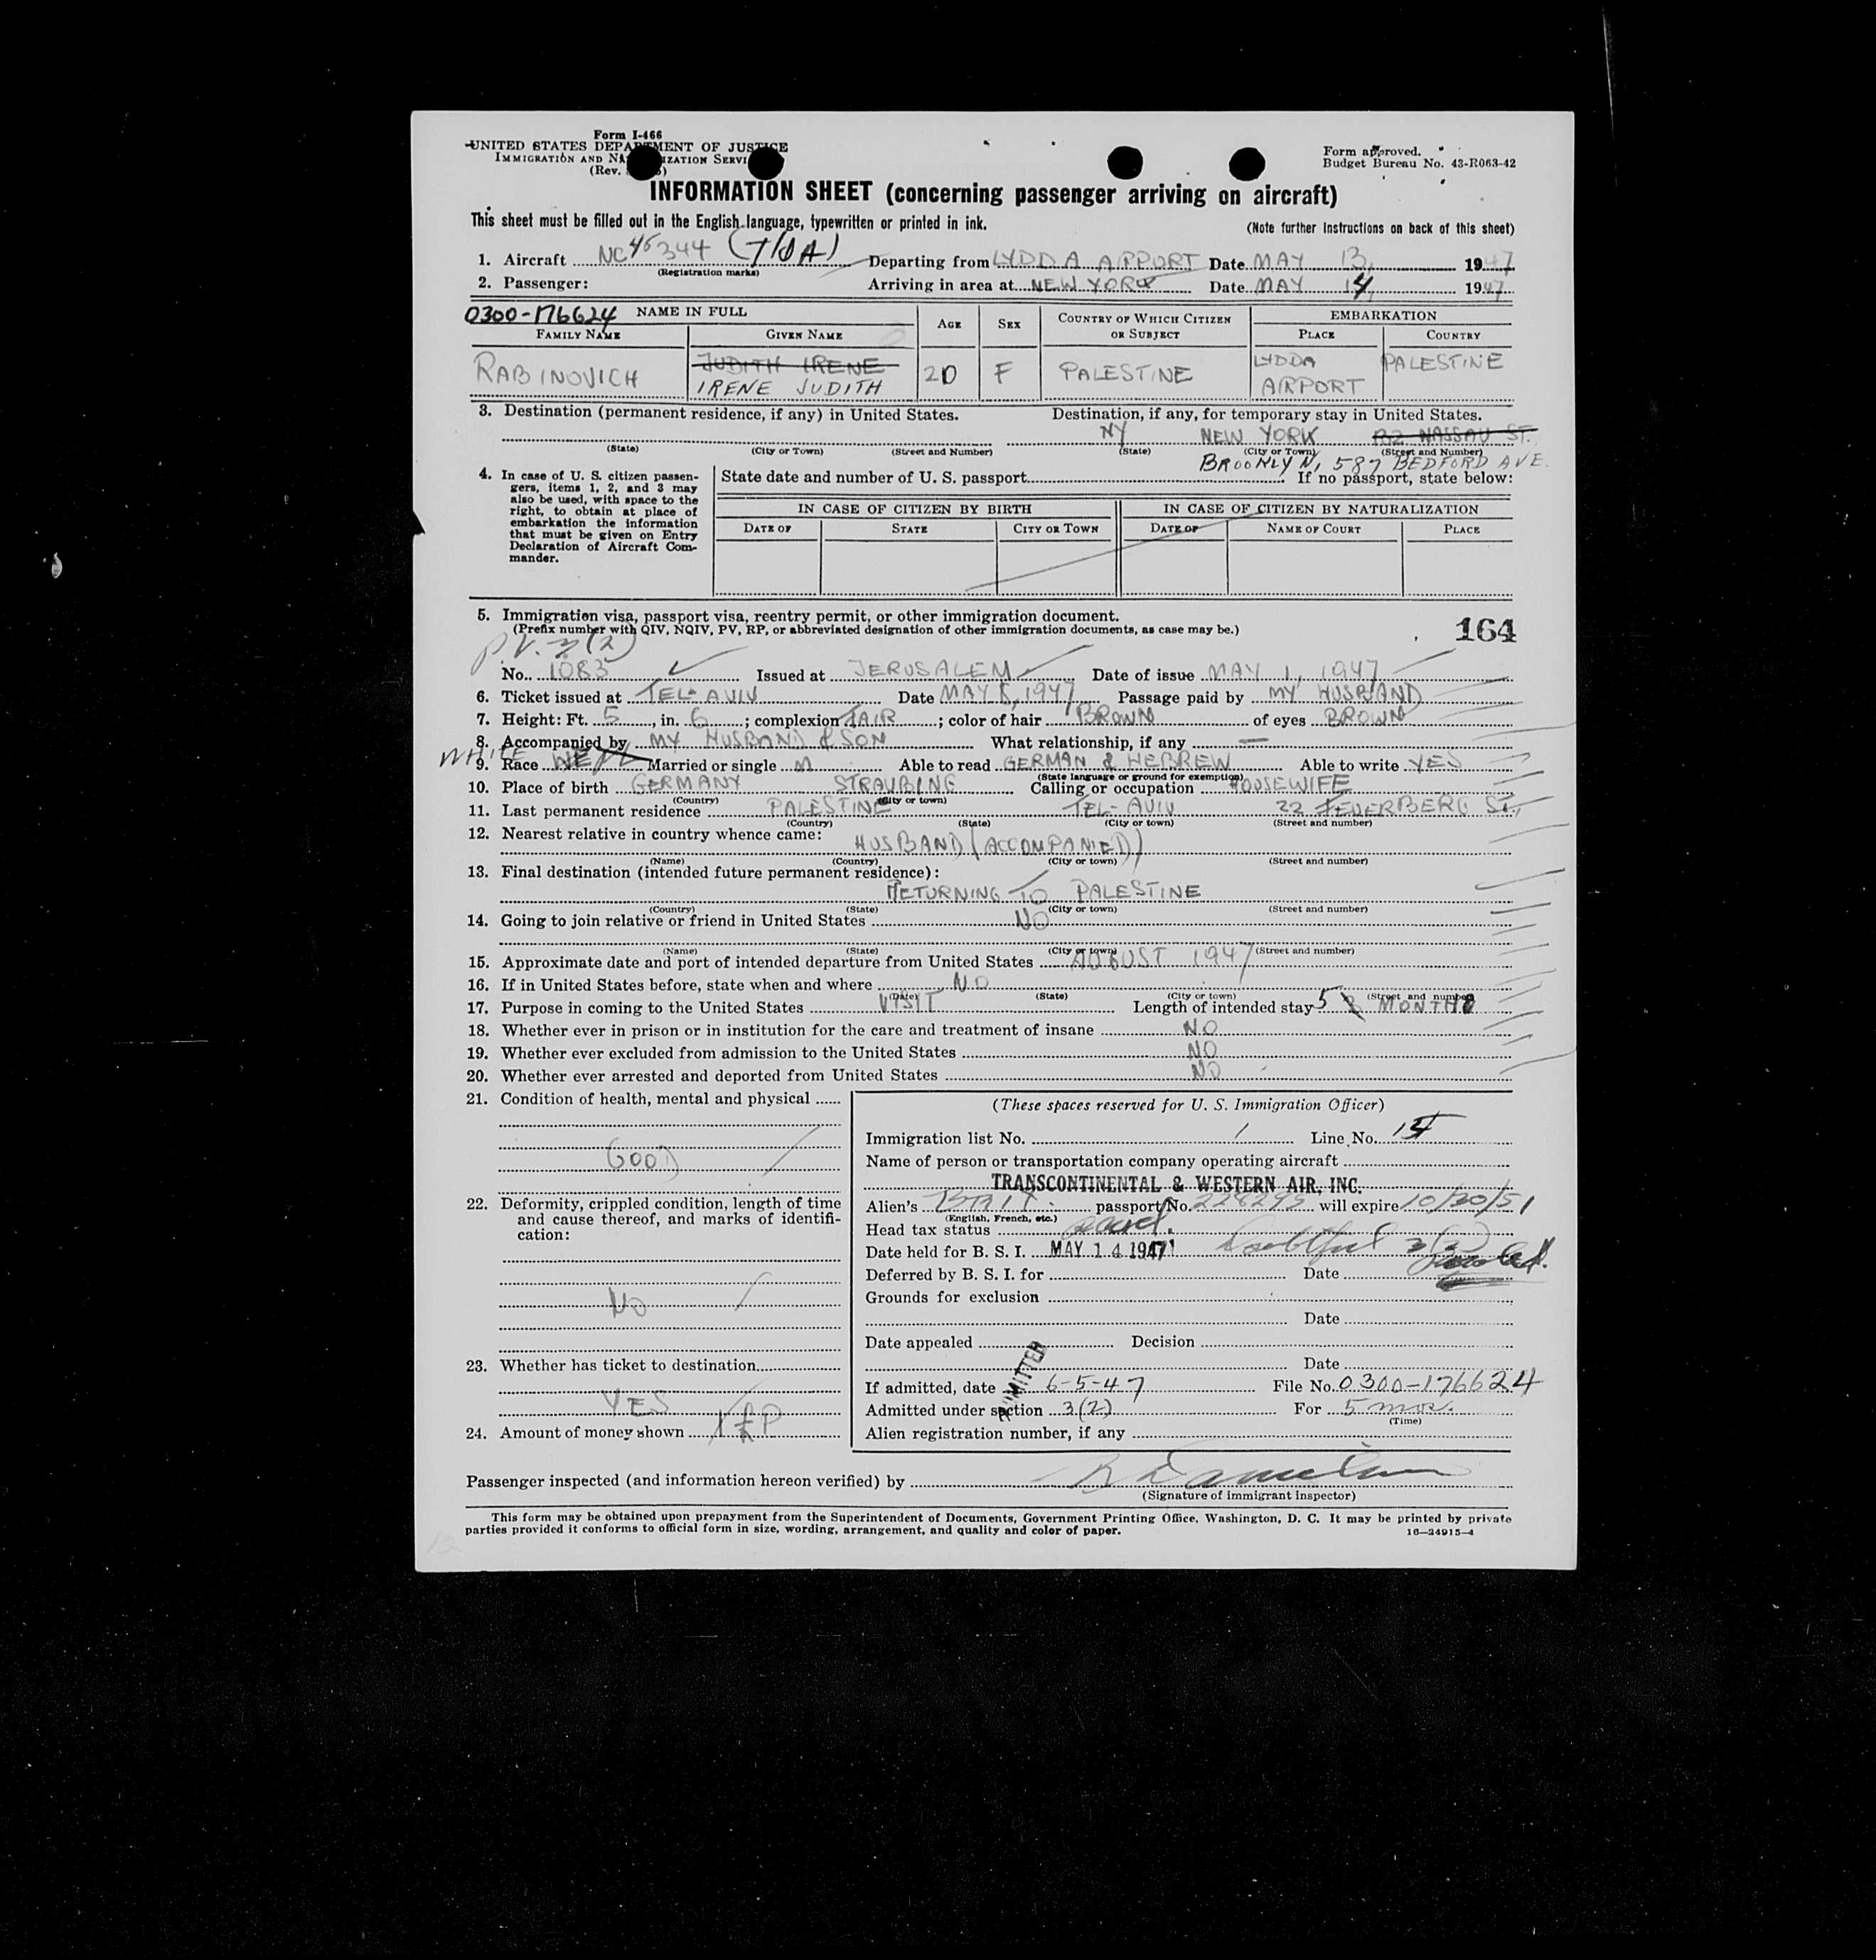 Form I-466
UNITED STATES DEPARTMENT OF JUSTICE
IMMIGRATION AND NATURALIZATION SERVICE
(Rev.
Form approved.
Budget Bureau No. 43-R063-42
INFORMATION SHEET (concerning passenger arriving on aircraft)
This sheet must be filled out in the English language, typewritten or printed in ink.
(Note further instructions on back of this sheet)
1. Aircraft NC 45344 (TWA) Departing from LYDDA AIRPORT Date MAY 13, 1947
(Registration marks)
2. Passenger: Arriving in area at NEW YORK Date MAY 14, 1947
0300-176624 NAME IN FULL
FAMILY NAME GIVEN NAME AGE SEX COUNTRY OF WHICH CITIZEN OR SUBJECT EMBARKATION PLACE COUNTRY
JUDITH IRENE
RABINOVICH IRENE JUDITH 20 F PALESTINE LYDDA AIRPORT PALESTINE
3. Destination (permanent residence, if any) in United States. Destination, if any, for temporary stay in United States.
NY NEW YORK NASSAU ST.
(State) (City or Town) (Street and Number) (State) (City or Town) (Street and Number)
BROOKLYN, 587 BEDFORD AVE.
4. In case of U. S. citizen passengers, items 1, 2, and 3 may also be used, with space to the right, to obtain at place of embarkation the information that must be given on Entry Declaration of Aircraft Commander.
State date and number of U. S. passport If no passport, state below:
IN CASE OF CITIZEN BY BIRTH IN CASE OF CITIZEN BY NATURALIZATION
DATE OF STATE CITY OR TOWN DATE OF NAME OF COURT PLACE
5. Immigration visa, passport visa, reentry permit, or other immigration document.
(Prefix number with QIV, NQIV, PV, RP, or abbreviated designation of other immigration documents, as case may be.)
164
PV. 3(2)
No. 1083 Issued at JERUSALEM Date of issue MAY 1, 1947
6. Ticket issued at TEL-AVIV Date MAY 8, 1947 Passage paid by MY HUSBAND
7. Height: Ft. 5, in. 6; complexion FAIR; color of hair BROWN of eyes BROWN
8. Accompanied by MY HUSBAND & SON What relationship, if any —
WHITE
9. Race Married or single M Able to read GERMAN & HEBREW Able to write YES
(State language or ground for exemption)
10. Place of birth GERMANY STRAUBING Calling or occupation HOUSEWIFE
(Country) (City or town)
11. Last permanent residence PALESTINE TEL-AVIV 22 FEUERBERG ST.,
(Country) (State) (City or town) (Street and number)
12. Nearest relative in country whence came: HUSBAND (ACCOMPANIED)
(Name) (Country) (City or town) (Street and number)
13. Final destination (intended future permanent residence):
RETURNING TO PALESTINE
(Country) (State) (City or town) (Street and number)
14. Going to join relative or friend in United States NO
(Name) (State) (City or town) (Street and number)
15. Approximate date and port of intended departure from United States AUGUST 1947
16. If in United States before, state when and where NO
(Date) (State) (City or town) (Street and number)
17. Purpose in coming to the United States VISIT Length of intended stay 5 3 MONTHS
18. Whether ever in prison or in institution for the care and treatment of insane NO
19. Whether ever excluded from admission to the United States NO
20. Whether ever arrested and deported from United States NO
21. Condition of health, mental and physical
GOOD
22. Deformity, crippled condition, length of time and cause thereof, and marks of identification:
NO
23. Whether has ticket to destination
YES
24. Amount of money shown
(These spaces reserved for U. S. Immigration Officer)
Immigration list No. 1 Line No.
Name of person or transportation company operating aircraft
TRANSCONTINENTAL & WESTERN AIR, INC.
Alien's Brit. passport No. 228295 will expire 10/30/51
(English, French, etc.)
Head tax status
Date held for B. S. I. MAY 14 1947 Doubtful 3(2)
Deferred by B. S. I. for Date
Grounds for exclusion
Date
Date appealed Decision
Date
ADMITTED
If admitted, date 6-5-47 File No. 0300-176624
Admitted under section 3(2) For 5 mos.
(Time)
Alien registration number, if any
Passenger inspected (and information hereon verified) by
(Signature of immigrant inspector)
This form may be obtained upon prepayment from the Superintendent of Documents, Government Printing Office, Washington, D. C. It may be printed by private
parties provided it conforms to official form in size, wording, arrangement, and quality and color of paper.
16—24915-4